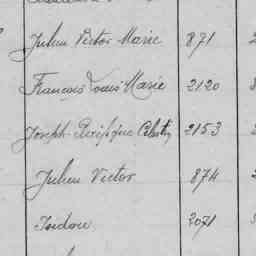 Julien Victor Marie 871
François Louis Marie 2120
Joseph 2153
Julien Victor 874
Isidore 2071